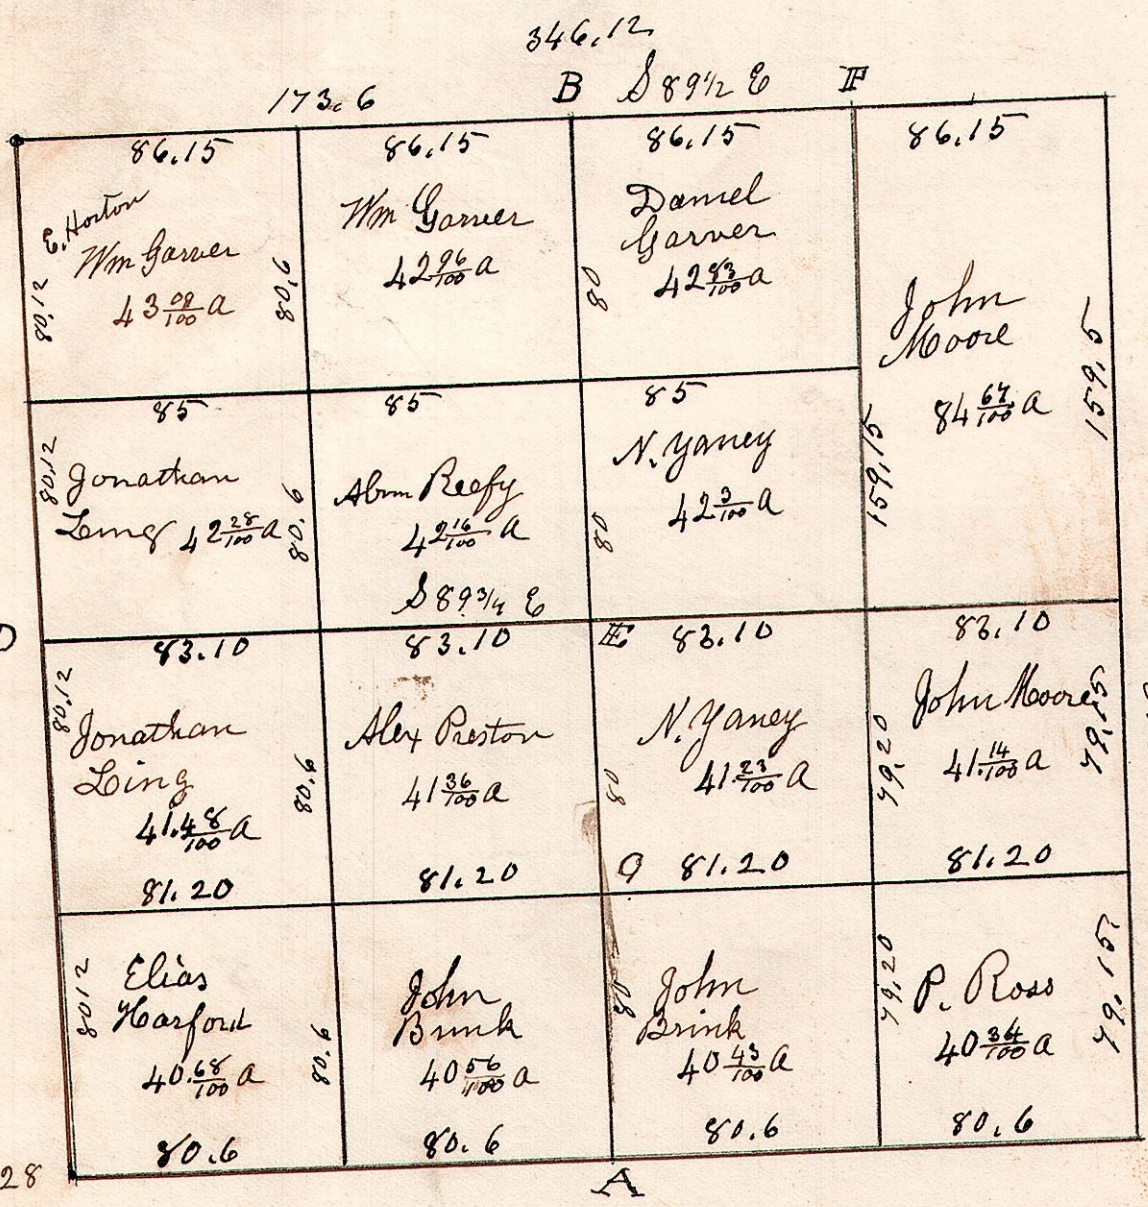 346.12
173.6 B S 89 1/2 E F
86.15
E. Horton
Wm Garver
43 09/100 a
80.12
80.6
86.15
Wm Garver
42 96/100 a
86.15
Daniel
Garver
42 83/100 a
80
86.15
John
Moore
84 67/100 a
159.15
159.5
85
80.12
Jonathan
Ling 42 28/100 a
80.6
85
Abrm Reefy
42 16/100 a
S 89 3/4 E
85
N. Yaney
42 3/100 a
80
D
83.10
80.12
Jonathan
Ling
41.48/100 a
80.6
81.20
83.10
Alex Preston
41 36/100 a
81.20
E 83.10
N. Yaney
41 23/100 a
80
81.20
83.10
John Moore
41 14/100 a
79.20
79.15
81.20
80 12
Elias
Harford
40.68/100 a
80.6
80.6
John
Brink
40 56/100 a
80.6
80
John
Brink
40 43/100 a
80.6
79.20
P. Ross
40 34/100 a
79.15
80.6
28
A